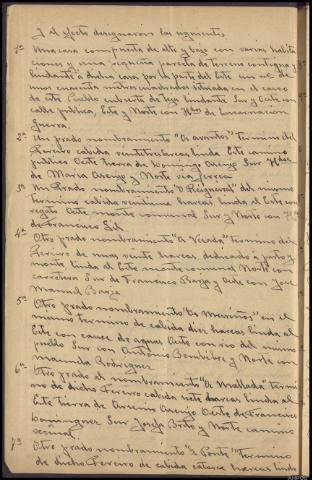 Y al efecto designaron las siguientes
1ª Una casa compuesta de alto y bajo con varias habita
ciones y una pequeña parcela de terreno contigua y
lindante a dicha casa por la parte del Este un
unos cuarenta metros cuadrados situada en el casco
de este Pueblo cubierta de teja lindante Sur y Oeste con
calle publica, Este y Norte con de Encarnación
Guerra.
2ª Un prado nombramiento termino del
Pereiro cabida veintitres areas, linda Este camino
publico Oeste tierra de Domingo Arenjo Sur
de Maria Arenjo y Norte via ferrea
3ª Un Prado nombramiento del mismo
termino cabida veintiuna areas linda al Este con
regato Oeste monte comunal Sur y Norte con
de Francisco
4ª Otro prado nombramiento termino del
Pereiro de unas veinte hareas, dedicado a pasto y
monte linda al Este monte comunal Norte con
carretera Sur de Francisco Barja y Oeste con José
Manuel Barja
5ª Otro prado nombramiento en el
mismo termino de cabida diez hareas linda al
Este con cauce de aguas Oeste con rio del mismo
pueblo Sur con Antonio y Norte con
Rodriguez
6ª Otro prado al nombramiento "A Mallada" termi
no de dicho Pereiro cabida siete hareas linda al
Este tierra de Arsenio Arenjo Oeste de Francisco
Dominguez Sur Josefa Brito y Norte camino
vecinal.
7ª Otro prado nombramiento termino
de dicho Pereiro de cabida catorce hareas linda